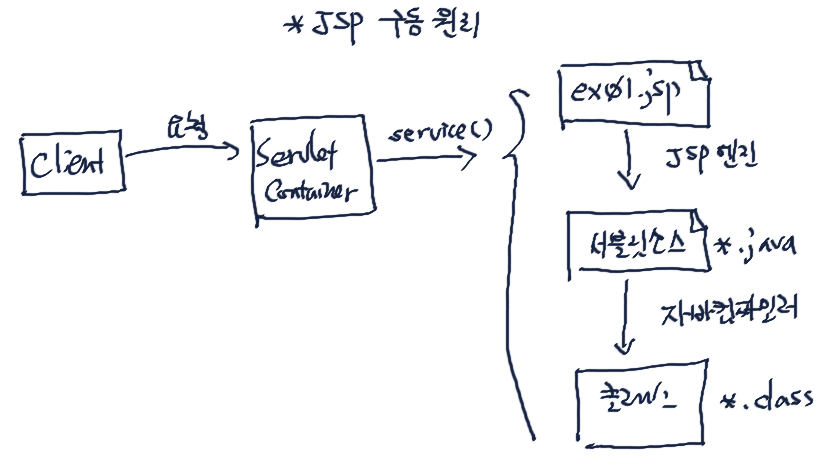 * JSP 구동 원리
Client
요청
Servlet
Container
service()
ex01.jsp
JSP 엔진
서블릿소스
*.java
자바컴파일러
클래스
*.class